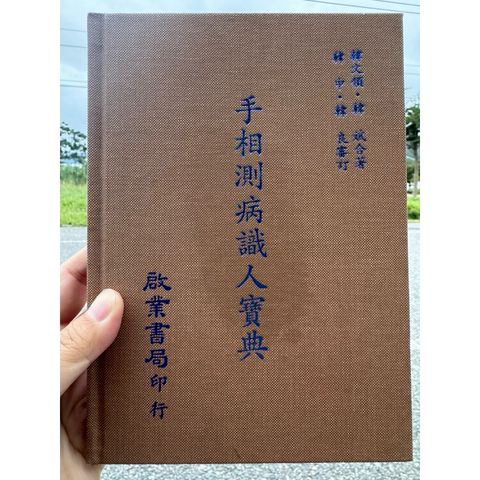 韓文領·韓斌合著
韓中·韓良審訂
手相測病識人寶典
啟業書局印行